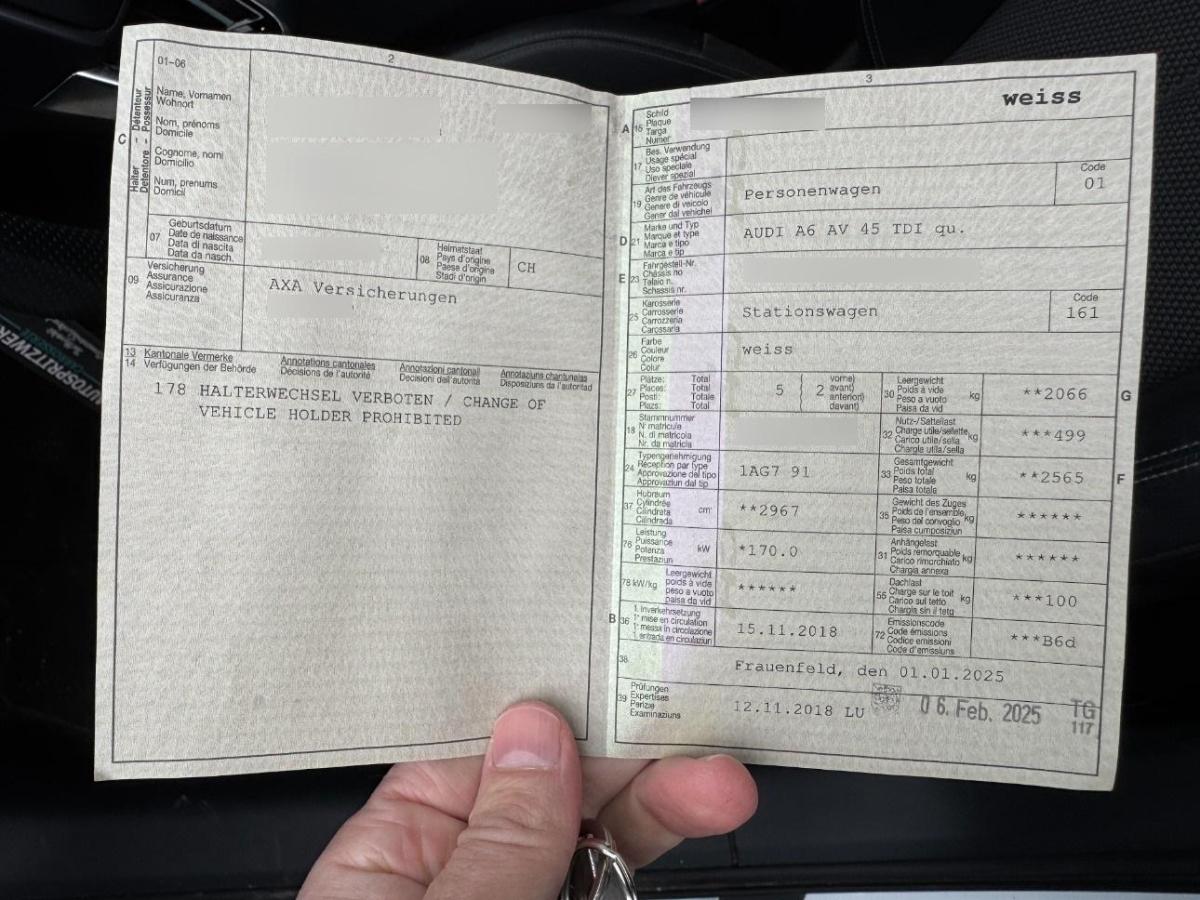 2
01-06
C
Halter - Détenteur
Detentore - Possessur
Name, Vornamen
Wohnort
Nom, prénoms
Domicile
Cognome, nomi
Domicilio
Num, prenums
Domicil
07
Geburtsdatum
Date de naissance
Data di nascita
Data da nasch.
08
Heimatstaat
Pays d'origine
Paese d'origine
Stadi d'origin
CH
09
Versicherung
Assurance
Assicurazione
Assicuranza
AXA Versicherungen
13 Kantonale Vermerke Annotations cantonales Annotazioni cantonali Annotaziuns chantunalas
14 Verfügungen der Behörde Décisions de l'autorité Decisioni dell'autorità Disposiziuns da l'autoritad
178 HALTERWECHSEL VERBOTEN / CHANGE OF
VEHICLE HOLDER PROHIBITED
3
weiss
A 15
Schild
Plaque
Targa
Numer
17
Bes. Verwendung
Usage spécial
Uso speciale
Diever spezial
19
Art des Fahrzeugs
Genre de véhicule
Genere di veicolo
Gener dal vehichel
Personenwagen
Code
01
D 21
Marke und Typ
Marque et type
Marca e tipo
Marca e tip
AUDI A6 AV 45 TDI qu.
E 23
Fahrgestell-Nr.
Châssis no
Telaio n.
Schassis nr.
25
Karosserie
Carrosserie
Carrozzeria
Carossaria
Stationswagen
Code
161
26
Farbe
Couleur
Colore
Colur
weiss
27
Plätze: Total
Places: Total
Posti: Totale
Plazs: Total
5 { 2
vorne)
avant)
anteriori)
davant)
30
Leergewicht
Poids à vide
Peso a vuoto
Paisa da vid
kg
**2066
G
18
Stammnummer
N° matricule
N. di matricola
Nr. da matricla
32
Nutz-/Sattellast
Charge utile/sellette
Carico utile/sella
Chargia utila/sella
kg
***499
24
Typengenehmigung
Réception par type
Approvazione del tipo
Approvaziun dal tip
1AG7 91
33
Gesamtgewicht
Poids total
Peso totale
Paisa totala
kg
**2565
F
37
Hubraum
Cylindrée
Cilindrata
Cilindrada
cm³
**2967
35
Gewicht des Zuges
Poids de l'ensemble
Peso del convoglio
Paisa cumposiziun
kg
******
76
Leistung
Puissance
Potenza
Prestaziun
kW
*170.0
31
Anhängelast
Poids remorquable
Carico rimorchiato
Chargia annexa
kg
******
78 kW/kg
Leergewicht
poids à vide
peso a vuoto
paisa da vid
******
55
Dachlast
Charge sur le toit
Carico sul tetto
Chargia sin il tetg
kg
***100
B 36
1. Inverkehrsetzung
1re mise en circulation
1a messa in circolazione
1. entrada en circulaziun
15.11.2018
72
Emissionscode
Code émissions
Codice emissioni
Code d'emissiuns
***B6d
38
Frauenfeld, den 01.01.2025
39
Prüfungen
Expertises
Perizie
Examinaziuns
12.11.2018 LU
06. Feb. 2025
TG
117